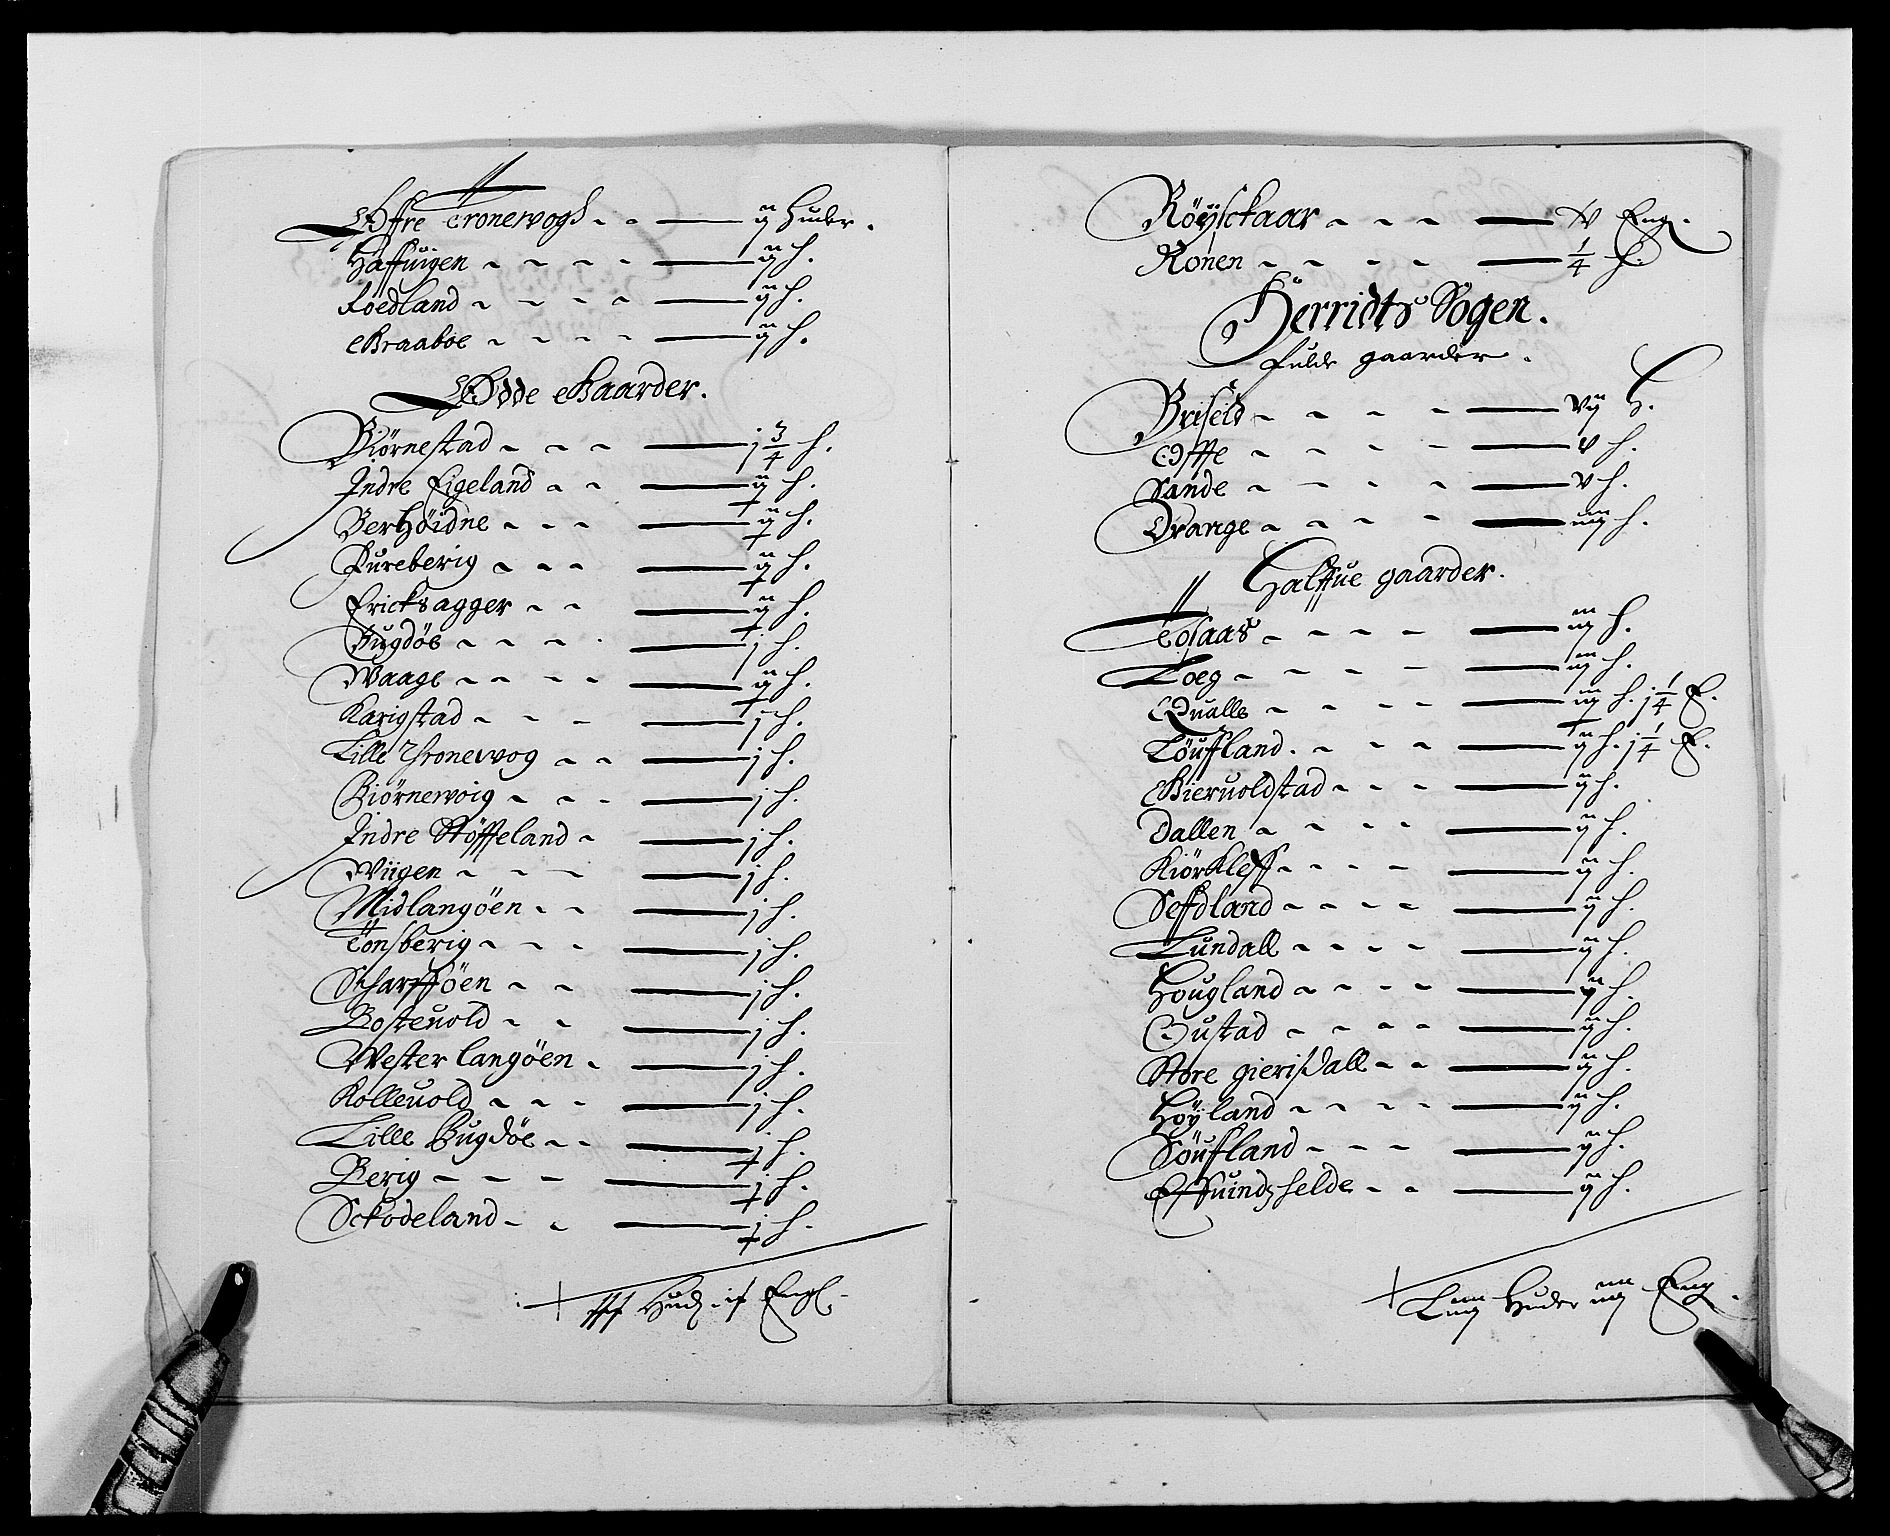 Øffre Tronewogh - - ij Huder.
Haffuigen - - - - ij h.
Roedland - - - - ij h.
Braaboe - - - - ij h.
Ødde Gaarder.
Biørnestad - - - j 3/4 h.
Indre Eigeland - - ij h.
Berhöidne - - - ij h.
Pureberig - - - ij h.
Ericksagger - - ij h.
Bugdöe - - - - j h.
Waage - - - - ij h.
Karigstad - - - j h.
Lille Thronewog - - j h.
Biørnewoig - - - j h.
Indre Støffeland - j h.
Wiigen - - - j h.
Midlangöen - - j h.
Tönsberig - - - j h.
Scharfföen - - j h.
Bosteuold - - j h.
Wester langöen - j h.
Kolleuold - - - j h.
Lille Bugdöe - - j h.
Berig - - - j h.
Sckodeland - - j h.
Hudr Engl.
Röysckaar - - - Eng.
Rönen - - - - 1/4 h.
Herridts Sogen.
fulde gaarder.
Briseid - - - - vij h.
Osffe - - - - v h.
Sande - - - - v h.
Orange - - - - iiij h.
Halffue gaarder.
Tosaas - - - - iij h.
Loeg - - - - iij h.
Qualle - - - - iij h. j 1/4 E.
Löuffland - - - - ij h. j 1/4 E.
Gieruoldstad - - - ij h.
Dallen - - - - ij h.
Kiörkleff - - - - ij h.
Seffdland - - - - ij h.
Lundall - - - - ij h.
Hougland - - - - ij h.
Bustad - - - - ij h.
Store gierisdall - - ij h.
Höyland - - - - ij h.
Söuffland - - - ij h.
Effuindshelde - - ij h.
Huder iiij Eng.